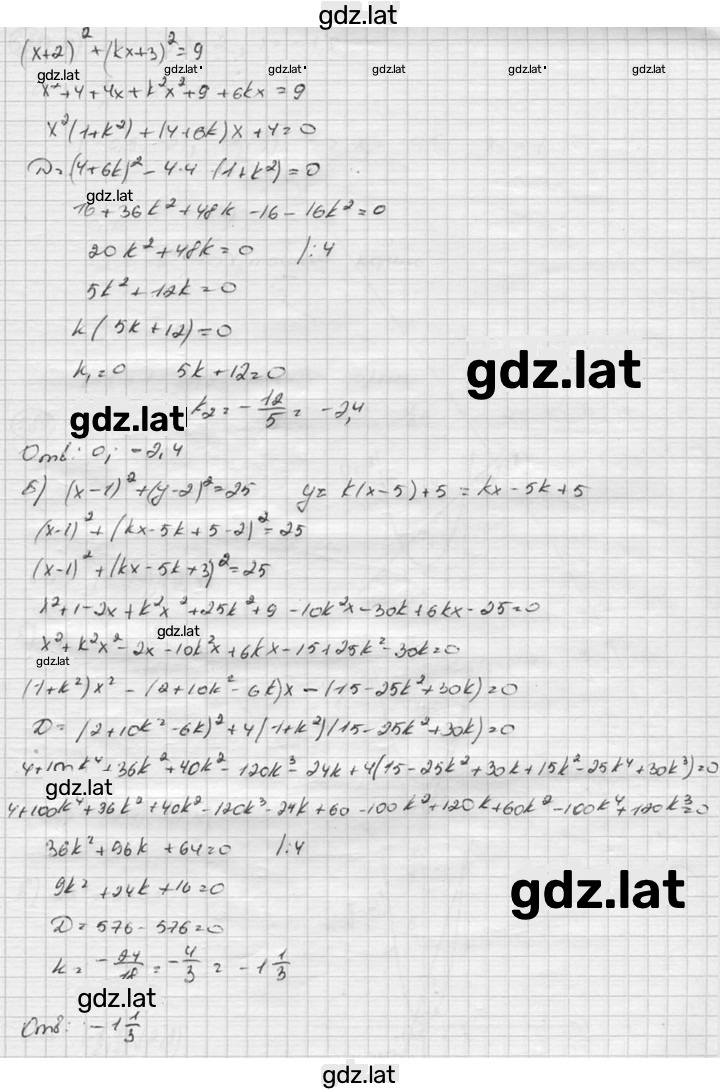 gdz.lat
(x+2)² + (kx+3)² = 9
gdz.lat gdz.lat gdz.lat gdz.lat gdz.lat
x²+4+4x+k²x²+9+6kx=9
x²(1+k²)+(4+6k)x+4=0
D=(4+6k)²-4·4 (1+k²)=0
gdz.lat
16+36k²+48k-16-16k²=0
20k²+48k=0 /:4
5k²+12k=0
k(5k+12)=0
k₁=0 5k+12=0
gdz.lat
gdz.lat k₂=-12/5=-2,4
Отв: 0; -2,4
б) (x-1)²+(y-2)²=25 y=k(x-5)+5=kx-5k+5
(x-1)²+(kx-5k+5-2)²=25
(x-1)²+(kx-5k+3)²=25
x²+1-2x+k²x²+25k²+9-10k²x-30k+6kx-25=0
gdz.lat
x²+k²x²-2x-10k²x+6kx-15+25k²-30k=0
gdz.lat
(1+k²)x²-(2+10k²-6k)x-(15-25k²+30k)=0
D=(2+10k²-6k)²+4(1+k²)(15-25k²+30k)=0
4+100k⁴+36k²+40k²-120k³-24k+4(15-25k²+30k+15k²-25k⁴+30k³)=0
gdz.lat
4+100k⁴+36k²+40k²-120k³-24k+60-100k²+120k+60k²-100k⁴+120k³=0
36k²+96k+64=0 /:4
9k²+24k+16=0
gdz.lat
D=576-576=0
k=-24/18=-4/3=-1 1/3
gdz.lat
Отв: -1 1/3
gdz.lat